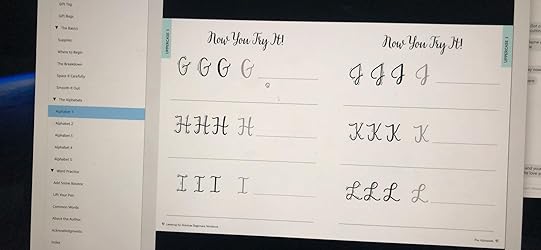 Gift Tag
Gift Bags
The Basics
Supplies
Where to Begin
The Breakdown
Space It Carefully
Smooth It Out
The Alphabets
Alphabet 1
Alphabet 2
Alphabet 3
Alphabet 4
Alphabet 5
Word Practice
Add Some Bounce
Lift Your Pen
Common Words
About the Author
Acknowledgments
Index
UPPERCASE
Now You Try It!
G G G G
H H H H
I I I I
Now You Try It!
UPPERCASE
J J J J
K K K K
L L L L
The Alphabets